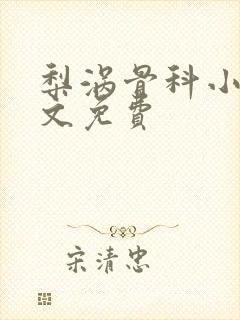 梨涡骨科小
文免費
宋清忠